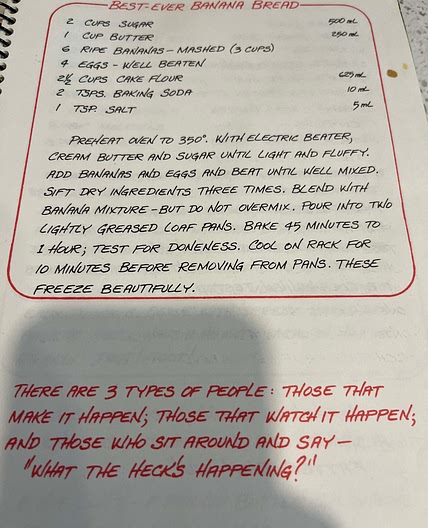 BEST-EVER BANANA BREAD
2 CUPS SUGAR 500 mL
1 CUP BUTTER 250 mL
6 RIPE BANANAS - MASHED (3 CUPS)
4 EGGS - WELL BEATEN
2½ CUPS CAKE FLOUR 625 mL
2 TSPS. BAKING SODA 10 mL
1 TSP. SALT 5 mL
PREHEAT OVEN TO 350°. WITH ELECTRIC BEATER,
CREAM BUTTER AND SUGAR UNTIL LIGHT AND FLUFFY.
ADD BANANAS AND EGGS AND BEAT UNTIL WELL MIXED.
SIFT DRY INGREDIENTS THREE TIMES. BLEND WITH
BANANA MIXTURE - BUT DO NOT OVERMIX. POUR INTO TWO
LIGHTLY GREASED LOAF PANS. BAKE 45 MINUTES TO
1 HOUR; TEST FOR DONENESS. COOL ON RACK FOR
10 MINUTES BEFORE REMOVING FROM PANS. THESE
FREEZE BEAUTIFULLY.
THERE ARE 3 TYPES OF PEOPLE: THOSE THAT
MAKE IT HAPPEN; THOSE THAT WATCH IT HAPPEN;
AND THOSE WHO SIT AROUND AND SAY -
"WHAT THE HECK'S HAPPENING?"